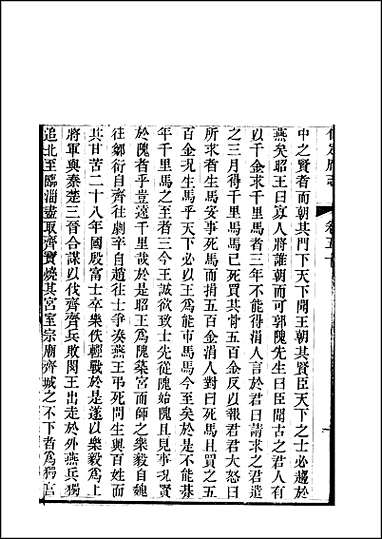 中之賢者而朝其門下天下聞王朝其賢臣天下之士必趨於
燕矣昭王曰寡人將誰朝而可郭隗先生曰臣聞古之君人有
以千金求千里馬者三年不能得涓人言於君曰請求之君遣
之三月得千里馬馬已死買其骨五百金反以報君君大怒曰
所求者生馬安事死馬而捐五百金涓人對曰死馬且買之五
百金况生馬乎天下必以王爲能市馬馬今至矣於是不能朞
年千里馬之至者三今王誠欲致士先從隗始隗且見事况賢
於隗者乎豈遠千里哉於是昭王爲隗築宮而師之樂毅自魏
往鄒衍自齊往劇辛自趙往士爭湊燕王弔死問生與百姓而
共甘苦二十八年國殷富士卒樂佚輕戰於是遂以樂毅爲上
將軍與秦楚三晉合謀以伐齊齊兵敗閔王出走於外燕兵獨
追北至臨淄盡取齊寶燒其宮室宗廟齊城之不下者爲獨官